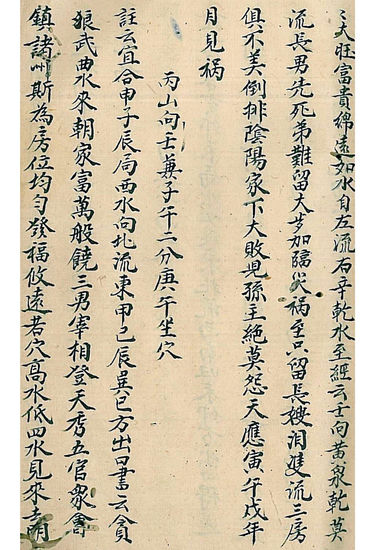 之大旺富貴綿遠如水自左流右辛乾水至經云壬向黃泉乾莫
流長男先死弟難留大步加臨災禍至只留長嫂淚雙流三房
俱不美倒排陰陽家下大敗児孫主絶莫怨天應寅午戌年
月見禍
丙山向壬兼子午二分庚午坐穴
註云宜合申子辰局西水向北流東甲乙辰巽巳方出口書云貪
狼武曲水來朝家富萬般饒三男宰相登天秀五官衆會
鎮諸州斯為房位均匀發福攸遠若穴高水低四水見來去